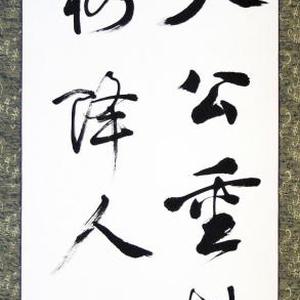 公重
格降人